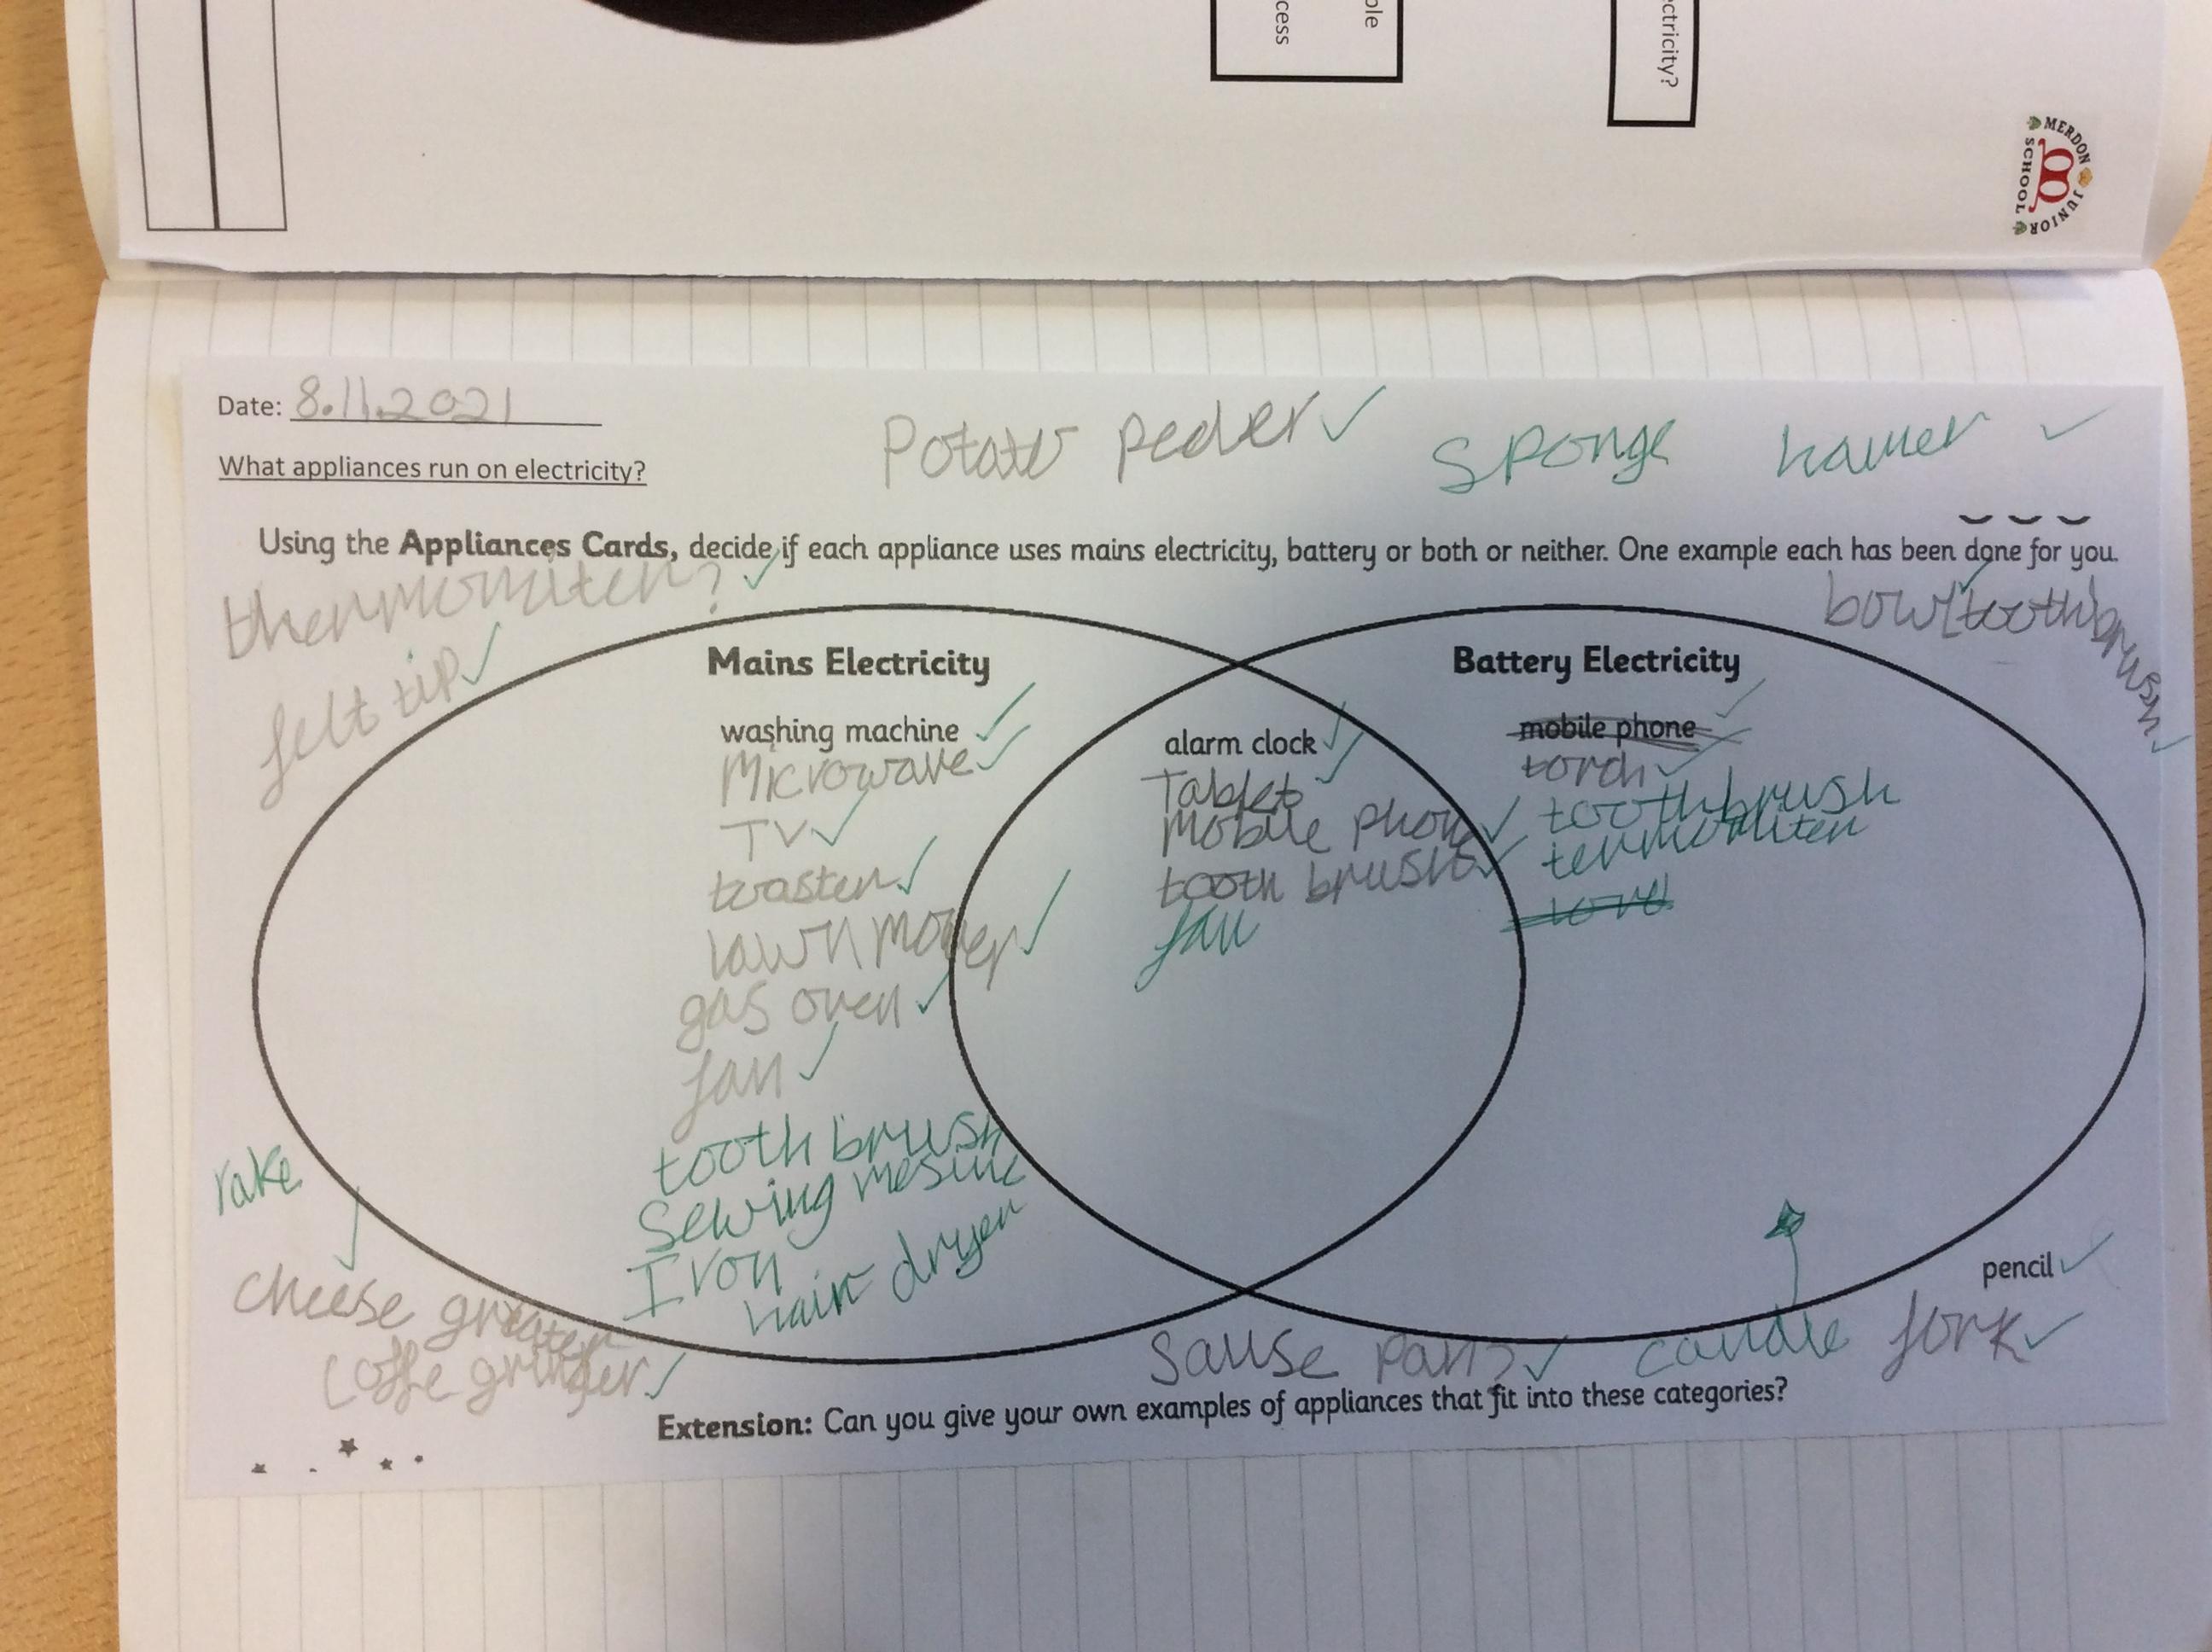 cess
ble
ectricity?
MERDON JUNIOR SCHOOL
Date: 8.11.2021
What appliances run on electricity?
Potato pealer
Sponge
hamer
Using the Appliances Cards, decide if each appliance uses mains electricity, battery or both or neither. One example each has been done for you.
thermomiter?
felt tip
bowl toothbrush
Mains Electricity
washing machine
Microwave
TV
toaster
lawn mower
gas oven
fan
tooth brush
Sewing mesine
Iron
hair dryer
alarm clock
Tablet
Mobile phone
tooth brush
fan
Battery Electricity
mobile phone
torch
toothbrush
termomiter
rake
cheese grater
coffe grinder
Sause pan
candle
fork
pencil
Extension: Can you give your own examples of appliances that fit into these categories?